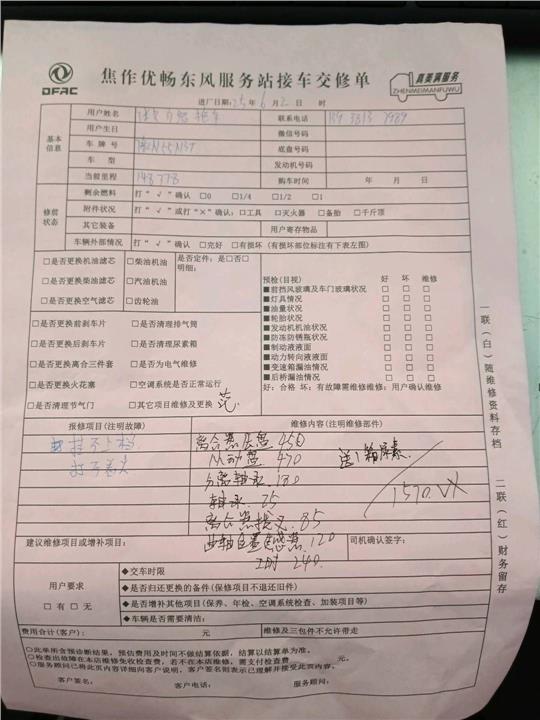 DFAC
焦作优畅东风服务站接车交修单
真美满服务
ZHENMEIMANFUWU
进厂日期:25年6月2日 时
基本信息
用户姓名 联系电话
用户生日 微信号码
车牌号 底盘号码
车型 发动机号码
当前里程 148778 购车时间 年 月 日
修前状态
剩余燃料 打“√”确认 □0 □1/4 □1/2 □1
附件状况 打“√”或打“×”确认:□工具 □灭火器 □备胎 □千斤顶
其它装备 用户寄存物品
车辆外部情况 打“√”确认 □完好 □有损坏(有损坏部位标注有下表左图)
□是否更换机油滤芯 □柴油机油
□是否更换柴油滤芯 □汽油机油
□是否更换空气滤芯 □齿轮油
是否定件:是□否□
明细:
□是否更换前刹车片 □是否清理排气筒
□是否更换后刹车片 □是否清理尿素箱
□是否更换离合三件套 □是否为电气维修
□是否更换火花塞 □空调系统是否正常运行
□是否清理节气门 □其它项目维修及更换
预检(目视) 好 坏 维修
■前挡风玻璃及车门玻璃状况 □ □ □
■灯具情况 □ □ □
■油量状况 □ □ □
■轮胎状况 □ □ □
■发动机机油状况 □ □ □
■防冻防锈瓶状况 □ □ □
■制动液液面 □ □ □
■动力转向液液面 □ □ □
■变速箱漏油情况 □ □ □
■后桥漏油情况 □ □ □
好:合格 坏:有故障需维修维修:用户确认维修
报修项目(注明故障) 维修内容(注明维修部件)
挂不上档
离合器压盘 450
从动盘 470
分离轴承 180
轴承 25
离合器拨叉 85
曲轴位置传感器 120
工时 240
送1箱尿素
1570
建议维修项目或增补项目: 司机确认签字:
用户要求
□有 □无
◆交车时限
◆是否归还更换的备件(保修项目不退还旧件)
◆是否增补其他项目(保养、年检、空调系统检查、加装项目等)
◆车辆是否需要清洁:
费用合计(客户): 元 维修及三包件不允许带走
○此单所含预诊断结果,预估费用及时间不做结算依据,结算以结算单为准。
○检查出故障在本店维修免收检查费,若不在本店维修,需支付检查费 元。
○服务顾问已将此页内容详细向客户说明,客户签名则表示已理解并接受此页内容。
客户签名: 客户电话: 服务顾问:
一联(白)随维修资料存档 二联(红)财务留存